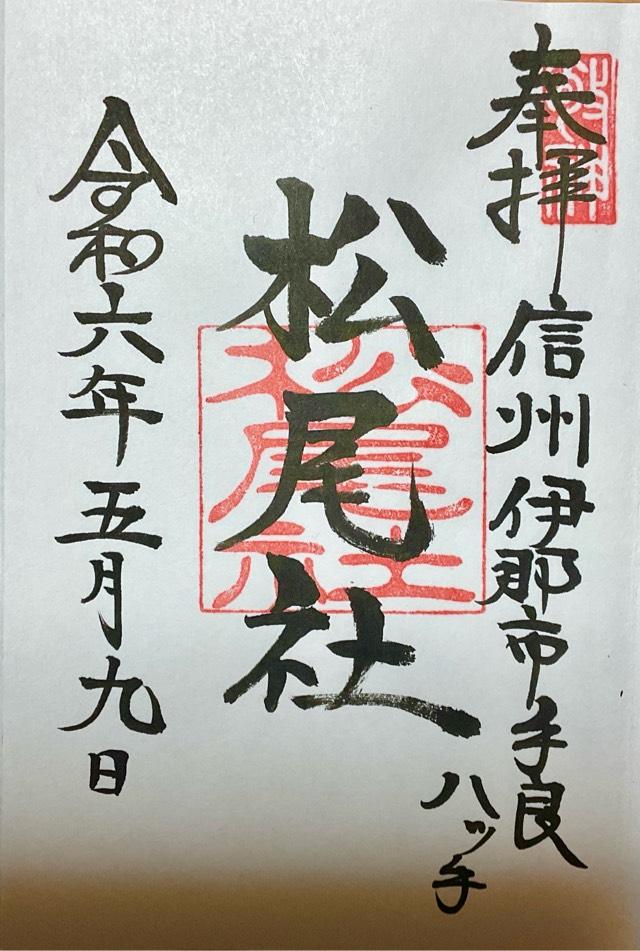 奉拝
信州伊那市手良
八ッ手
松尾社
松尾社
令和六年五月九日